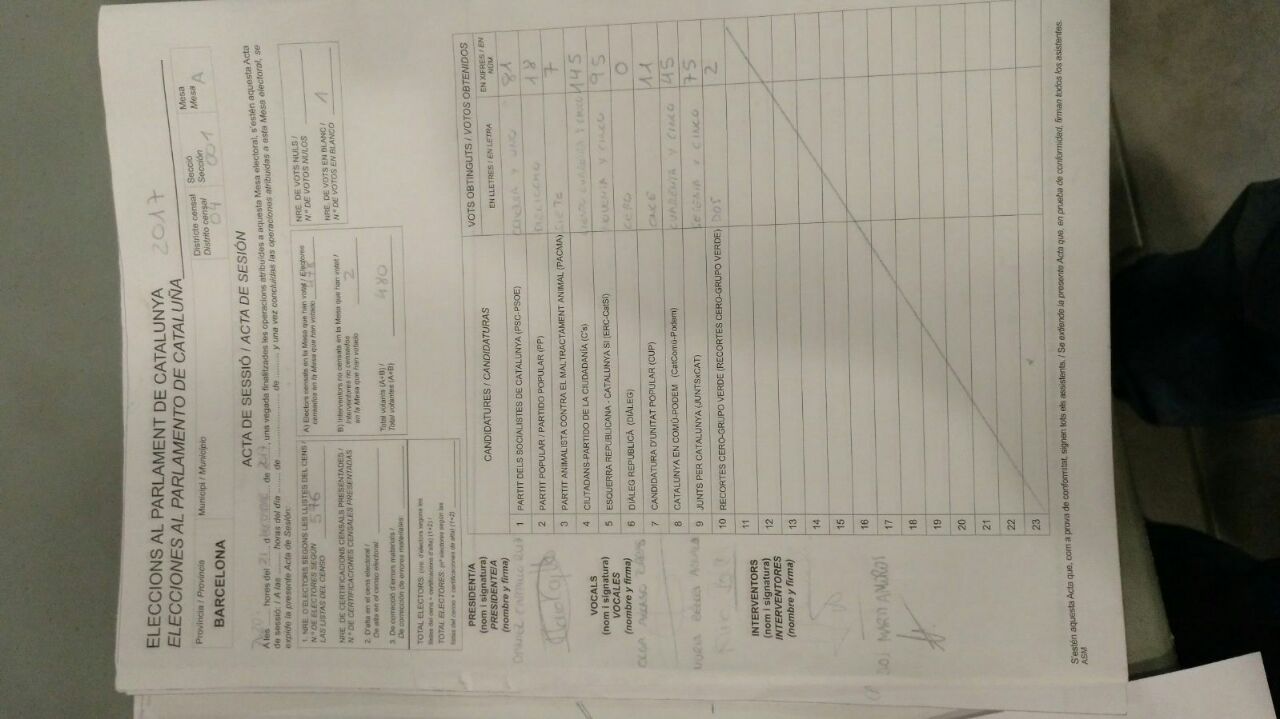 ELECCIONS AL PARLAMENT DE CATALUNYA
ELECCIONES AL PARLAMENTO DE CATALUÑA 2017
Província / Provincia
BARCELONA
Municipi / Municipio
Districte censal
Distrito censal
04
Secció
Sección
001
Mesa
Mesa A
ACTA DE SESSIÓ / ACTA DE SESIÓN
A les hores del 21 d de 2017, una vegada finalitzades les operacions atribuïdes a aquesta Mesa electoral, s'estén aquesta Acta
de sessió. / A las ........ horas del día ........ de ........ de ........ y una vez concluidas las operaciones atribuidas a esta Mesa electoral, se
expide la presente Acta de Sesión:
1. NRE. D'ELECTORS SEGONS LES LLISTES DEL CENS /
N.º DE ELECTORES SEGÚN
LAS LISTAS DEL CENSO 576
NRE. DE CERTIFICACIONS CENSALS PRESENTADES /
N.º DE CERTIFICACIONES CENSALES PRESENTADAS
2. D'alta en el cens electoral /
De alta en el censo electoral
3. De correcció d'errors materials /
De corrección de errores materiales
TOTAL ELECTORS: (nre. d'electors segons les
llistes del cens + certificacions d'alta) (1+2) /
TOTAL ELECTORES: (nº electores según las
listas del censo + certificaciones de alta) (1+2)
A) Electors censats en la Mesa que han votat / Electores
censados en la Mesa que han votado 478
B) Interventors no censats en la Mesa que han votat /
Interventores no censados
en la Mesa que han votado 2
Total votants (A+B) /
Total votantes (A+B) 480
NRE. DE VOTS NULS /
N.º DE VOTOS NULOS
NRE. DE VOTS EN BLANC /
N.º DE VOTOS EN BLANCO 1
CANDIDATURES / CANDIDATURAS
VOTS OBTINGUTS / VOTOS OBTENIDOS
EN LLETRES / EN LETRA
EN XIFRES / EN NÚM.
1 PARTIT DELS SOCIALISTES DE CATALUNYA (PSC-PSOE) ochenta y uno 81
2 PARTIT POPULAR / PARTIDO POPULAR (PP) dieciocho 18
3 PARTIT ANIMALISTA CONTRA EL MALTRACTAMENT ANIMAL (PACMA) siete 7
4 CIUTADANS-PARTIDO DE LA CIUDADANÍA (C's) ciento cuarenta y cinco 145
5 ESQUERRA REPUBLICANA - CATALUNYA SÍ (ERC-CatSÍ) noventa y cinco 95
6 DIÀLEG REPUBLICÀ (DIÀLEG) cero 0
7 CANDIDATURA D'UNITAT POPULAR (CUP) once 11
8 CATALUNYA EN COMÚ-PODEM (CatComú-Podem) cuarenta y cinco 45
9 JUNTS PER CATALUNYA (JUNTSxCAT) setenta y cinco 75
10 RECORTES CERO-GRUPO VERDE (RECORTES CERO-GRUPO VERDE) dos 2
11
12
13
14
15
16
17
18
19
20
21
22
23
PRESIDENT/A
(nom i signatura)
PRESIDENTE/A
(nombre y firma)
VOCALS
(nom i signatura)
VOCALES
(nombre y firma)
INTERVENTORS
(nom i signatura)
INTERVENTORES
(nombre y firma)
S'estén aquesta Acta que, com a prova de conformitat, signen tots els assistents. / Se extiende la presente Acta que, en prueba de conformidad, firman todos los asistentes.
ASM